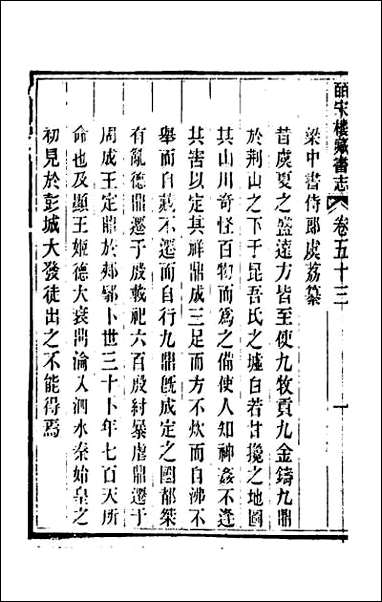 皕宋樓藏書志 卷五十三 一
梁中書侍郎虞荔纂
昔虞夏之盛遠方皆至使九牧貢九金鑄九鼎
於荆山之下于昆吾氏之墟白若甘攙之地圖
其山川奇怪百物而爲之備使人知神姦不逢
其害以定其祥鼎成三足而方不炊而自沸不
舉而自藏不遷而自行九鼎旣成定之國都桀
有亂德鼎遷于殷載祀六百殷紂暴虐鼎遷于
周成王定鼎於郟鄏卜世三十卜年七百天所
命也及顯王姬德大衰鼎淪入泗水秦始皇之
初見於彭城大發徒出之不能得焉